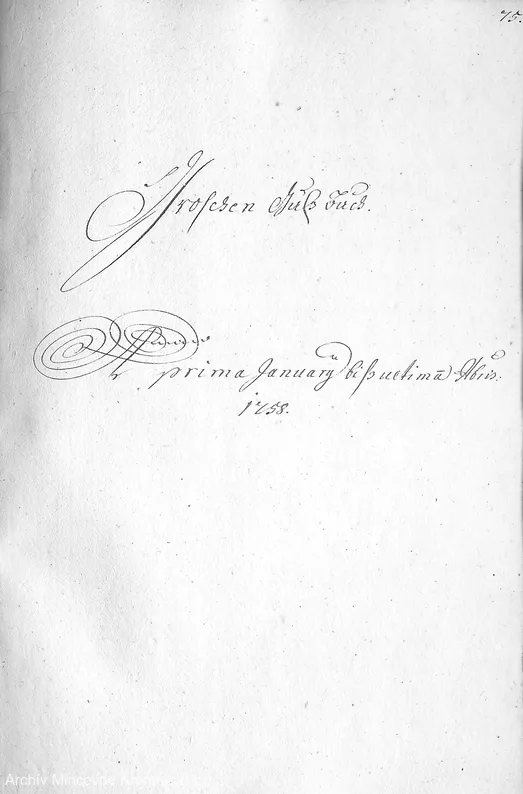 75.
Groschen Guß Buch.
prima January biß ultimã Xbris:
1758.
Archiv Mincovne Kremnica